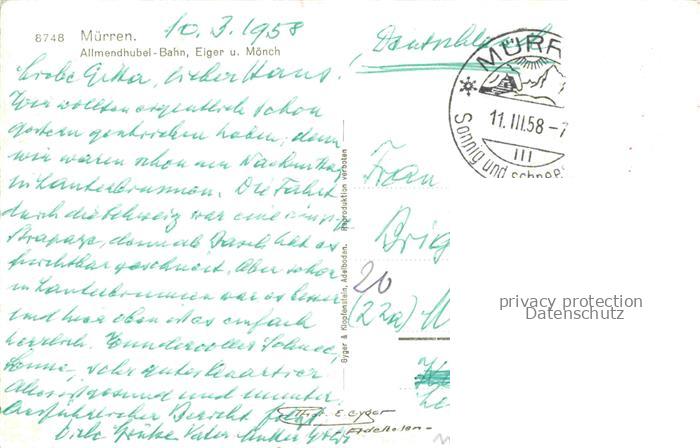 8748 Mürren. 10. 3. 1958
Allmendhubel-Bahn, Eiger u. Mönch
Liebe Gitta, lieber Hans.
Wir wollten eigentlich schon
gestern geschrieben haben, denn
wir waren schon am Nachmittag
in Lauterbrunnen. Die Fahrt
durch die Schweiz war eine einzige
Strapaze, denn ab Basel hat es
furchtbar geschneit. Aber schon
in Lauterbrunnen war es besser
und hier oben ist es einfach
herrlich. Wundervoller Schnee,
Sonne, sehr gutes Quartier.
Alles ist gesund und munter.
Ausführlicher Bericht folgt
Viele Grüße Vater Mutter
Deutschland
MÜRR
11.III.58-7
III
Sonnig und schnee
Frau
Brig
20
(22a) M
Gyger & Klopfenstein, Adelboden. Reproduktion verboten
Phot. E. Gyger
Adelboden
privacy protection
Datenschutz